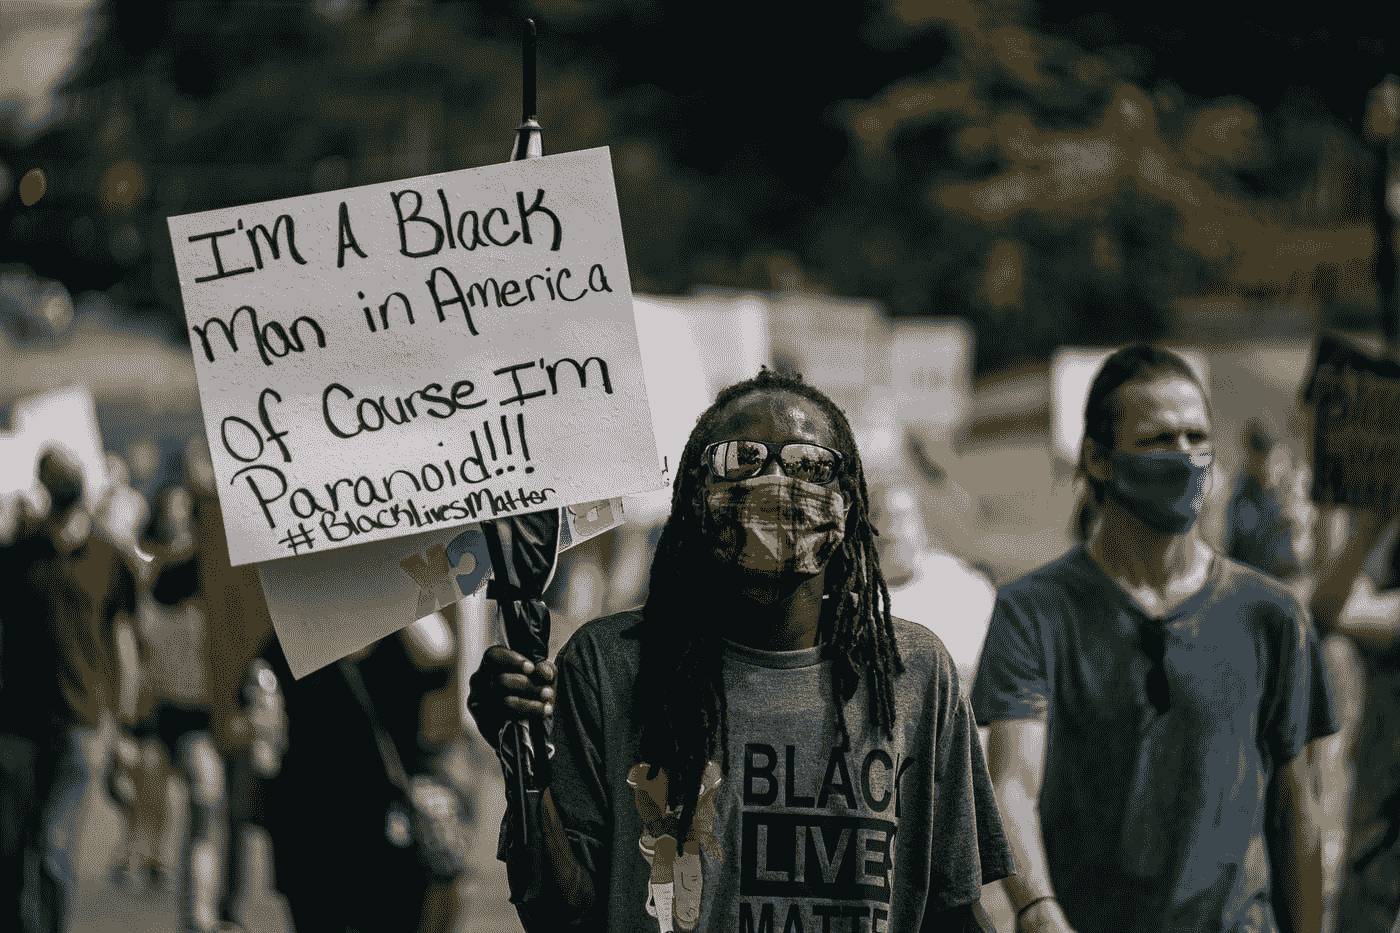 I'm A Black
Man in America
Of Course I'm
Paranoid!!!
#BlackLivesMatter
BLACK
LIVE
MATTE